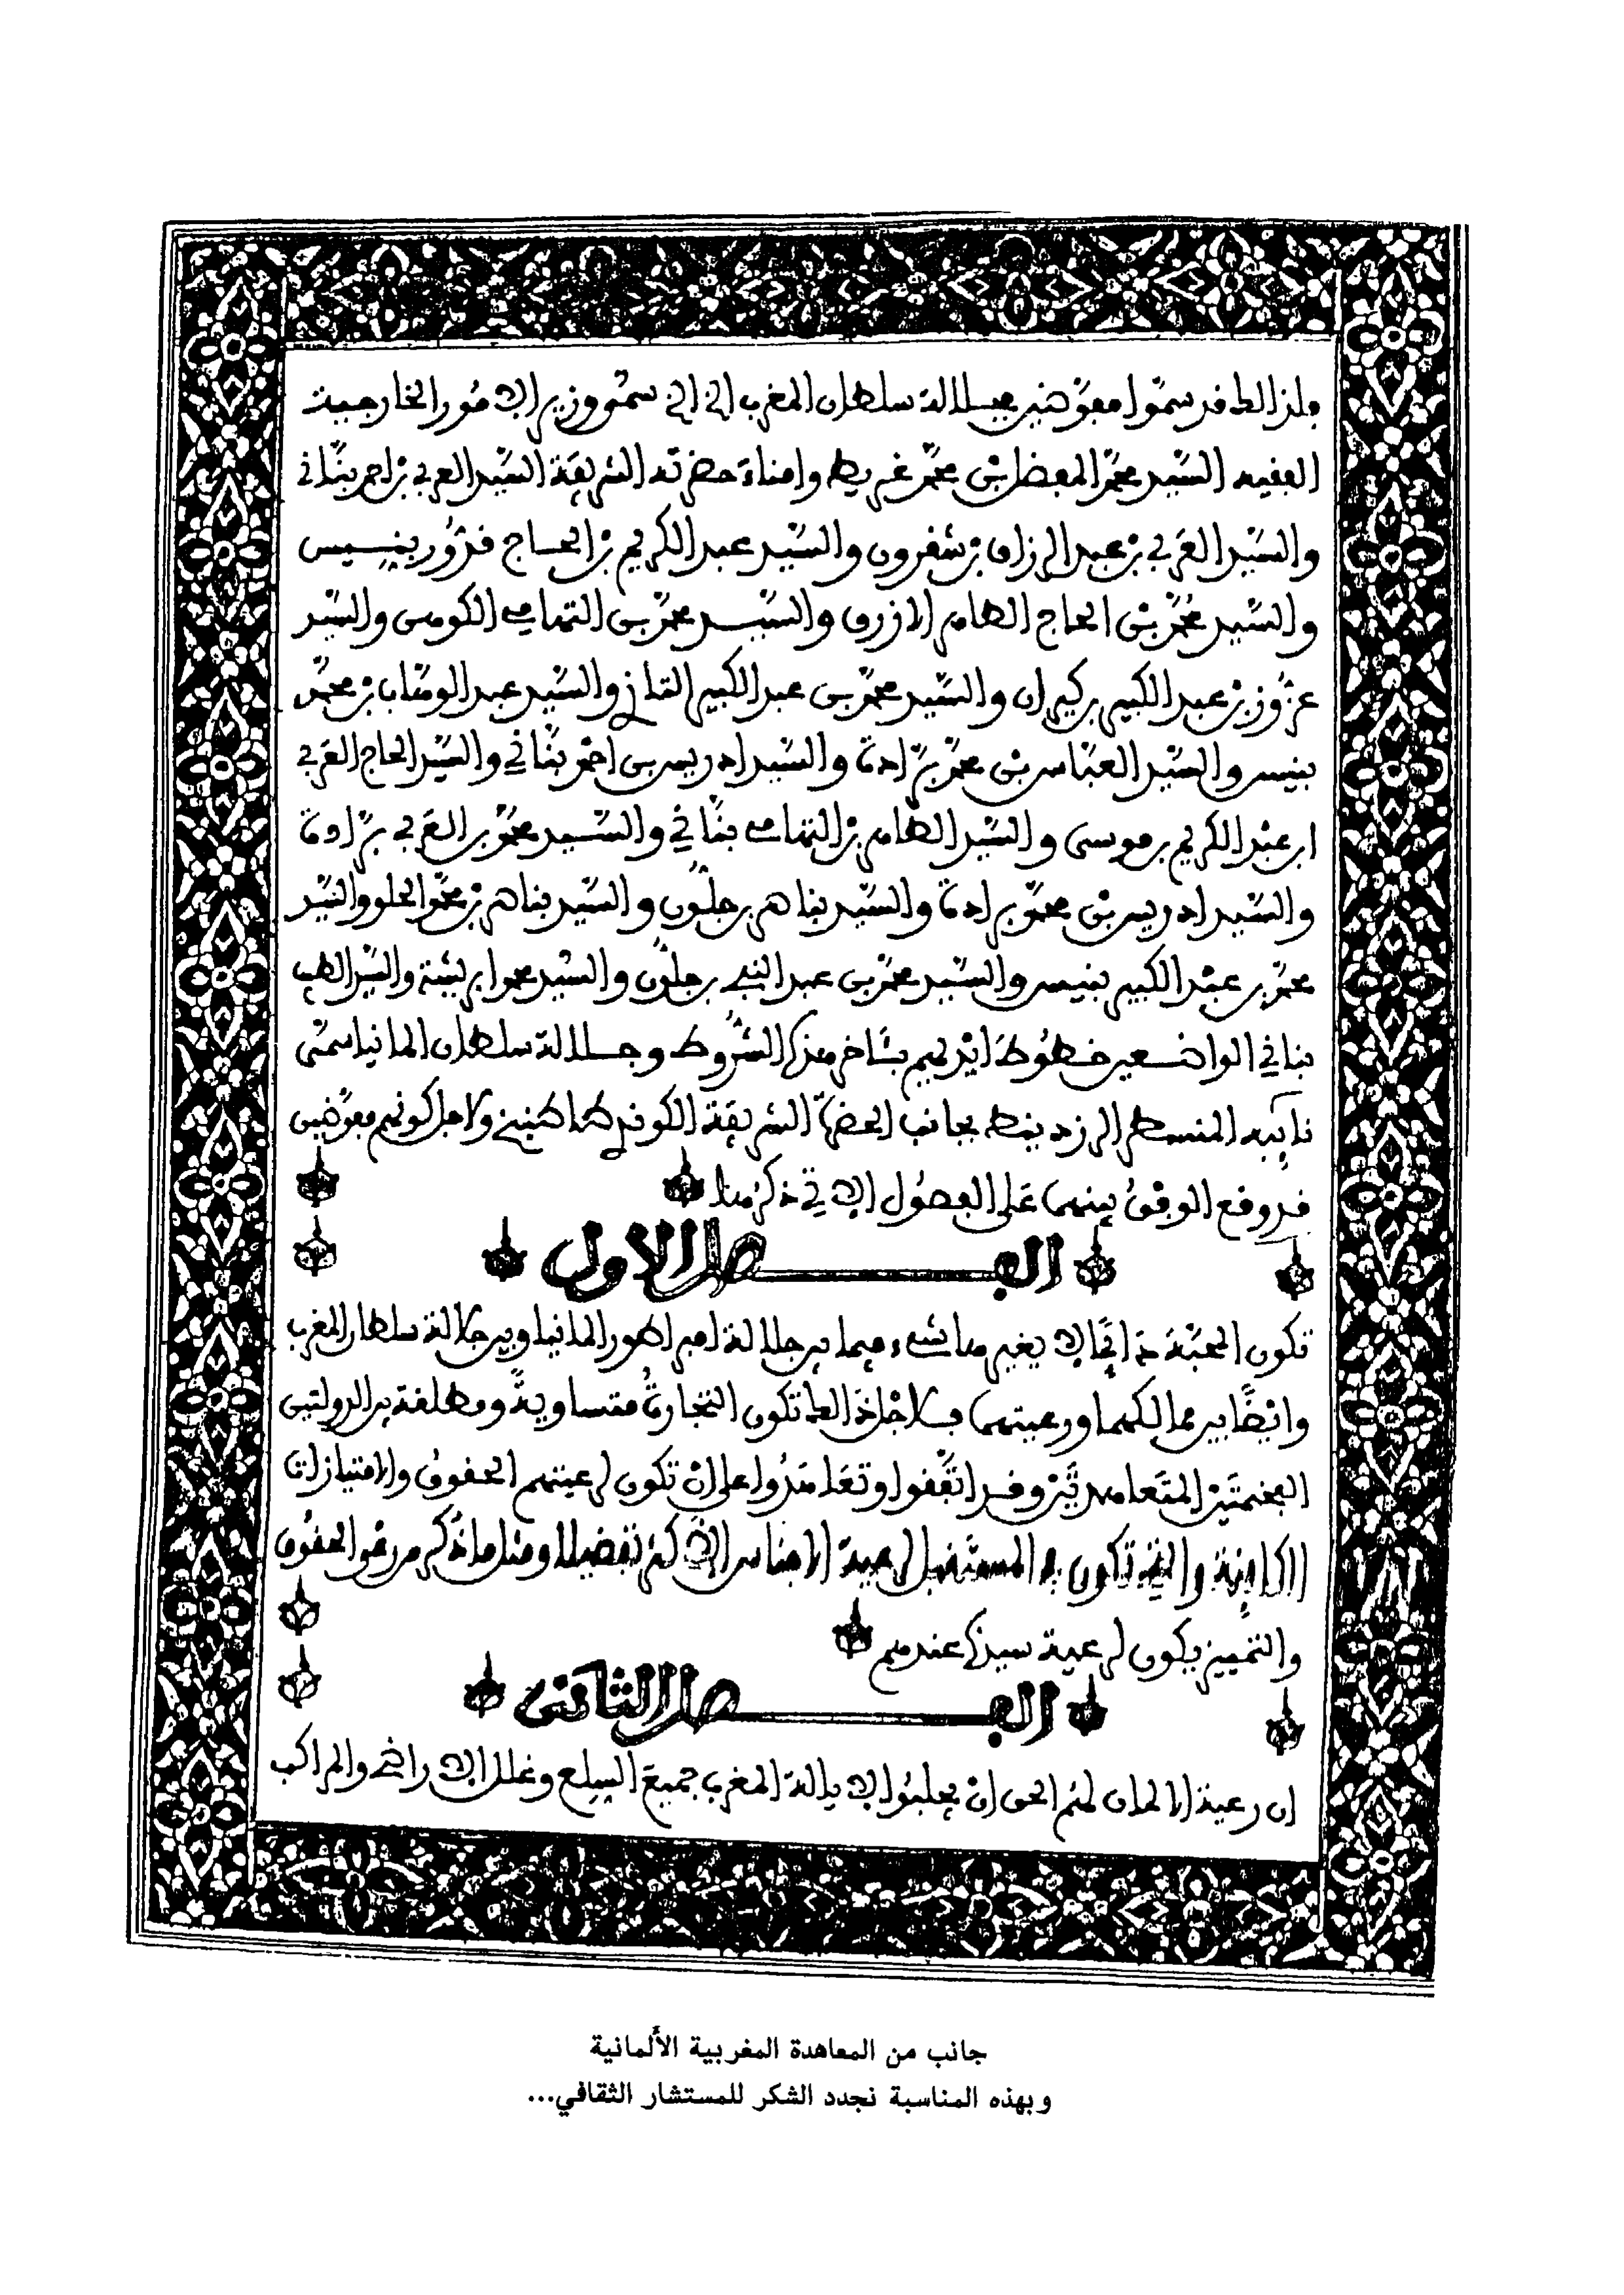 فلذالك قد سمّوا مفوّضين جلالة سلطان المغرب الى الى سمّو وزير الامور الخارجية
الفقيه السّيد محمّد المفضل بن محمّد غريط وامناء حضرته الشريفة السّيد العربي بن احمد بنّاني
والسّيد العَربي بن عبد الرزاق بن شقرون والسّيد عبد الكريم بن الحاج قدّور بنيس
والسّيد محمّد بن الحاج الطاهر الازرق والسّيد محمّد بن التهامي الكومي والسّيد
عزّوز بن عبد الكبير بن كيران والسّيد محمّد بن عبد الكبير التازي والسّيد عبد الوهّاب بن محمّد
بنيس والسّيد العبّاس بن محمّد برّادة والسّيد ادريس بن احمد بنّاني والسّيد الحاج العَربي
ابن عبد الكريم بن موسى والسّيد الطاهر بن التهامي بنّاني والسّيد محمّد بن العَربي برّادة
والسّيد ادريس بن محمّد برادة والسّيد بناصر بن جلّون والسّيد بناصر بن محمّد الحلو والسّيد
محمّد بن عبد الكبير بنيس والسّيد محمّد بن عبد النبي بن جلّون والسّيد محمد ابريشة والسّيد الطيب
بناني الواضعين خطوط ايديهم بئاخر هذه الشّروط وجلالة سلطان المانيا سمّى
نايبه المنسطر الرزدينط بجانب الحضرة الشريفة الكونط طاطنبخ ولاجل كونهم مفوّضين
قد وقع الوفق بينهما عَلى الفصُول الاتي ذكرُها
الفـــصل الاول
تكون المحبّة دائما لا يغيرها شيء فيما بين جلالة امبراطور المانيا وبين جلالة سلطان المغرب
وايضًا بين ممالكهما ورعيتهما فلاجل ذالك تكون التجارةُ متساويةً ومطلقة بين الدولتين
الفخيمتين المتعاهدتين وقد اتّفقوا وتعَاهَدُوا على انْ تكون لرعيتهم الحقوق والامتيازات
الكاينة والتي تكون في المستقبل لرعية الاجناس الاكثر تفضيلا ومثل ما ذُكر من نحو الحقوق
والتمييز يكون لرعية سيدنا عندهم
الفـــصل الثاني
ان رعية الالمان لهُم الحق انْ يجلبُوا لايالة المغرب جميعَ السلع وغلل الاراضي والمراكب
جانب من المعاهدة المغربية الألمانية
وبهذه المناسبة نجدد الشكر للمستشار الثقافي...